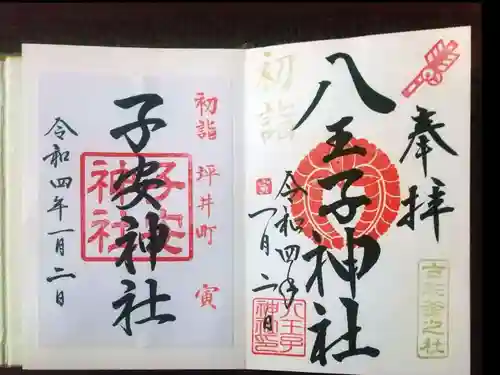 奉拝
八王子神社
初詣
令和四年
一月二日
八王子
神社印
初詣 坪井町 寅
子安神社
子安
神社
令和四年一月二日